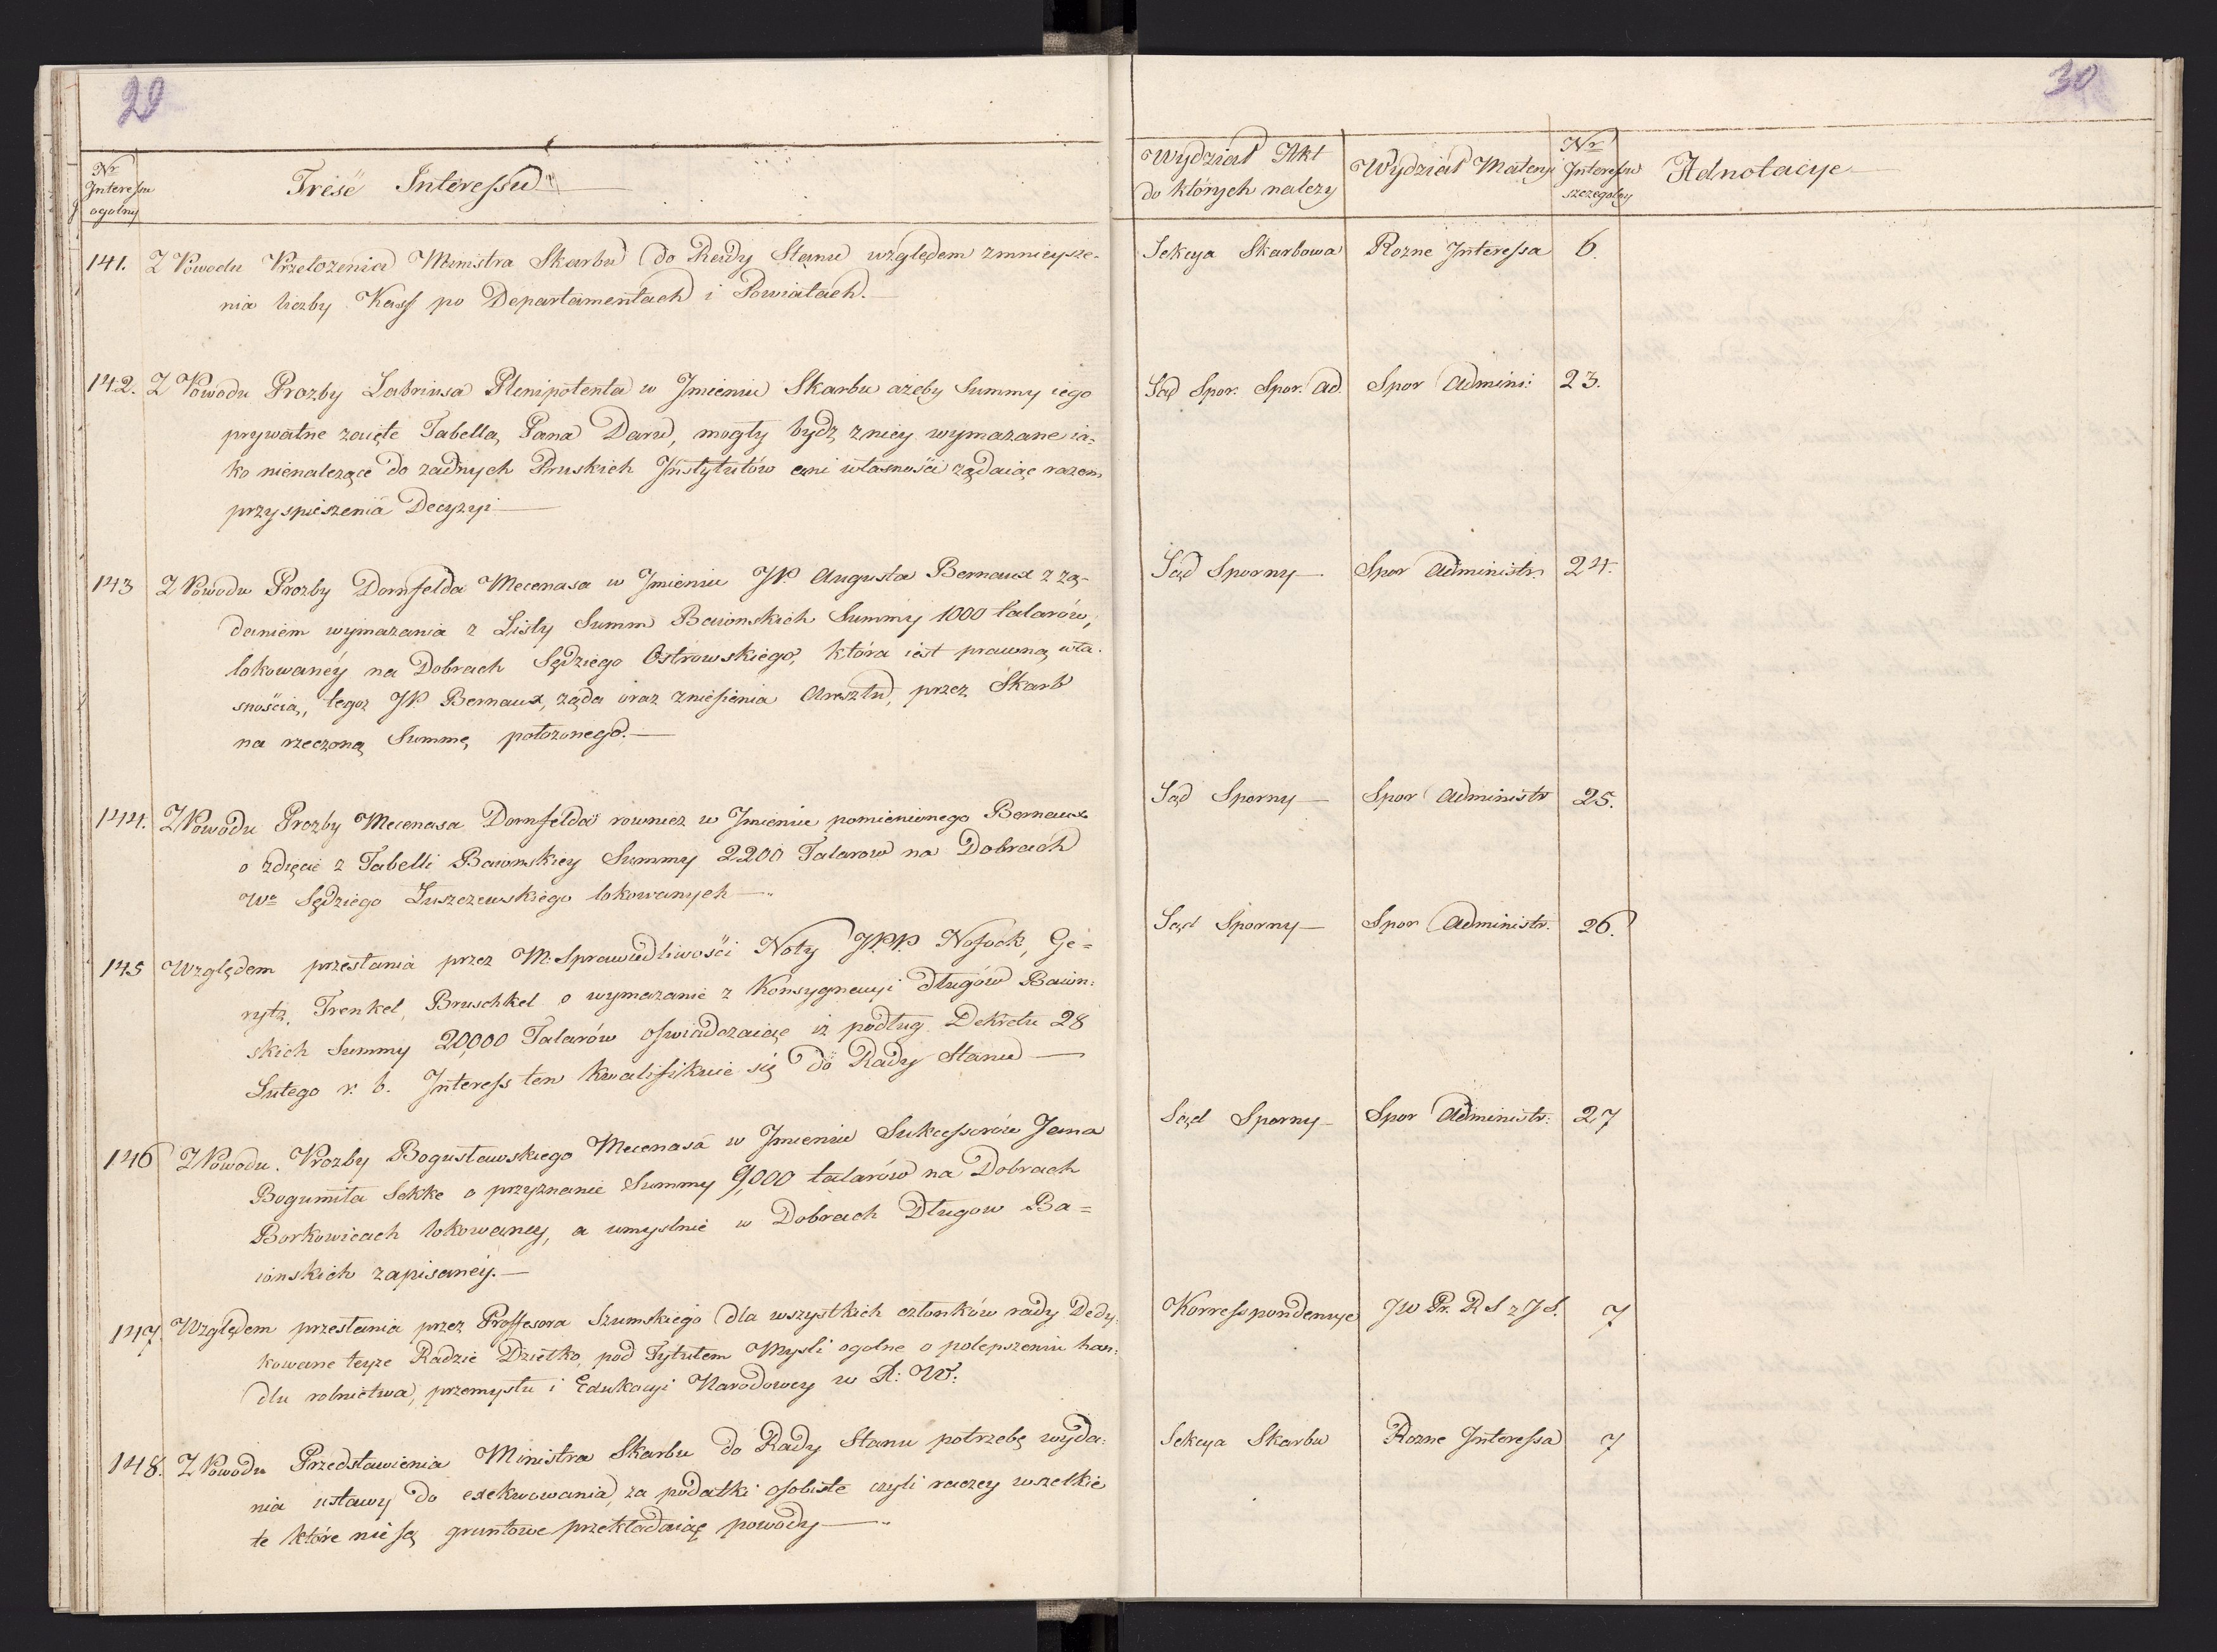 29
30
Nr Interessu ogolny
Treść Interessu
Wydział Akt do których nalezy
Wydział Materyi
Nr Interessu szczegolny
Adnotacije
141. Z Powodu Przełozenia Ministra Skarbu do Rady Stanu względem zmnieysze-
nia liczby Kass po Departamentach i Powiatach.
Sekcya Skarbowa
Rozne Interessa
6.
142. Z Powodu Prozby Labriusa Plenipotenta w Jmieniu Skarbu azeby Summy iego
prywatne zaięte Tabellą Pana Daru, mogły bydz z niey wymazane ia-
ko nienalezące do zadnych Pruskich Jnstytutów ani własności ządaiąc razem
przyspieszenia Decyzyi
Sąd Spor. Spor. Ad.
Spor Admini:
23.
143 Z Powodu Prozby Dornfelda Mecenasa w Jmieniu JP Augusta Bernaux z żą-
daniem wymazania z Listy Summ Baionskich Summy 1000 talarów,
lokowanéy na Dobrach Sędziego Ostrowskiego, która iest prawną wła-
snością, tegoz JP Bernaux, ząda oraz zniesienia Aresztu, przez Skarb
na rzeczoną Summę połozonego.
Sąd Sporny
Spor Administr.
24.
144. Z Powodu Prozby Mecenasa Dornfelda rowniez w Jmieniu pomienionego Bernaux
o zdięcie z Tabelli Baionskiey Summy 2200 Talarow na Dobrach
Wo Sędziego Łuszczewskiego lokowanych
Sąd Sporny
Spor Administr
25.
145 Względem przesłania przez M: Sprawiedliwości Noty JPP. Nosock, Ge=
rytz, Trenkel, Bruschkel o wymazanie z Konsygnacyi długów Baion:
skich Summy 20,000 Talarów oswiadczaiąc iz podług Dekretu 28
Lutego r. b. Jnteress ten kwalifikuie się do Rady Stanu
Sąd Sporny
Spor Administr.
26.
146 Z Powodu Prozby Bogusławskiego Mecenasa w Jmieniu Sukcessorów Jana
Bogumiła Sekke o przyznanie Summy 9,000 talarów na Dobrach
Borkowicach lokowaney, a umyslnie w Dobrach Długow Ba=
ionskich zapisaney.
Sąd Sporny
Spor Administr:
27
147. Względem przesłania przez Proffesora Szumskiego dla wszystkich członków rady Dedy-
kowane teyze Radzie Dziełko, pod Tytułem Mysli ogolne o polepszeniu han:
dlu rolnictwa, przemysłu i Edukacyi Narodowey w X: W:
Korresspondencye
JW Pr. R S z J S.
7
148. Z Powodu Przedstawienia Ministra Skarbu do Rady Stanu potrzebę wyda:
nia ustawy do exekwowania za podatki osobiste czyli raczey wszelkie
te które nie są gruntowe przekładaiąc powody
Sekcya Skarbu
Rozne Jnteressa
7